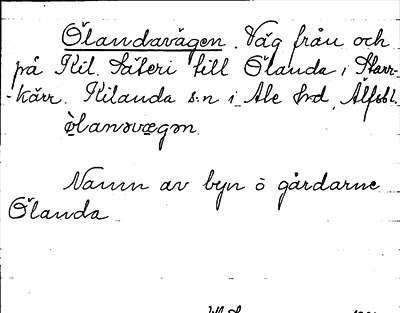 Ölandavägen. Väg från och
på Kil. Säteri till Ölanda i Starr-
-kärr. Kilanda s:n i Ale hrd, Älfsbl.
ò̤lanəvægən.
Namn av byn o gårdarne
Ölanda